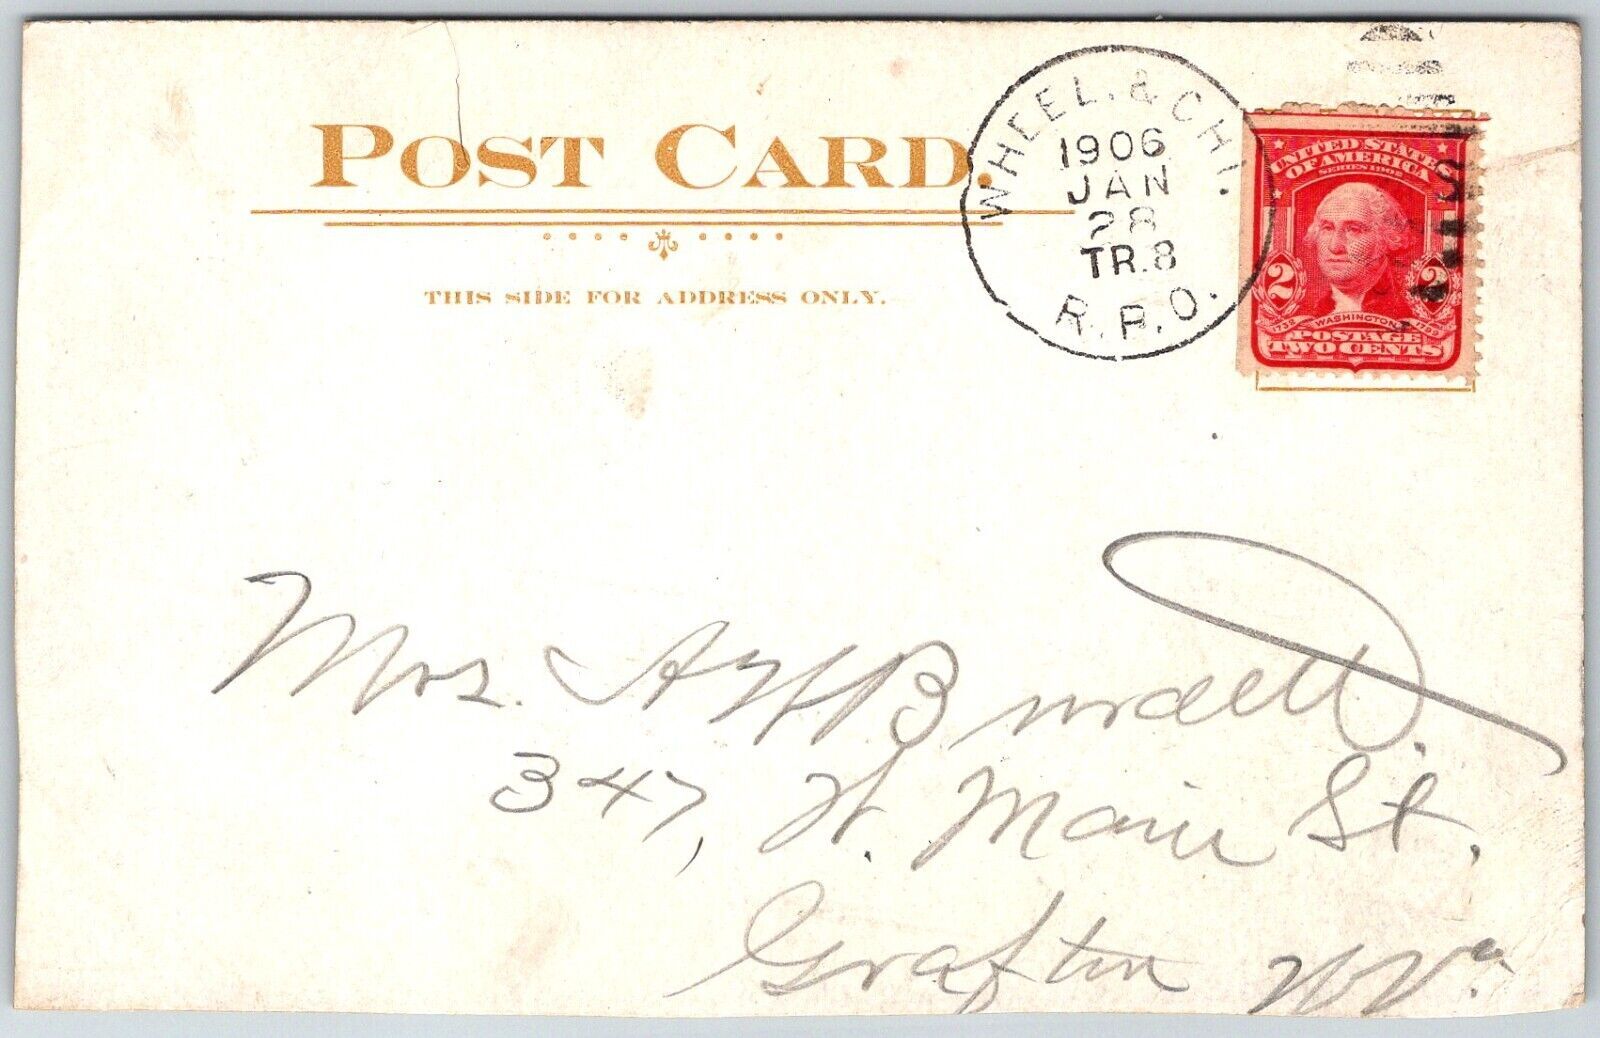 POST CARD.
THIS SIDE FOR ADDRESS ONLY.
WHEEL. & CHI.
1906
JAN
28
TR.8
R.P.O.
UNITED STATES
OF AMERICA
SERIES 1902
2 2
1732 WASHINGTON 1799
POSTAGE
TWO CENTS
Mrs. A W Burdett.
347, W. Main St.
Grafton W Va.